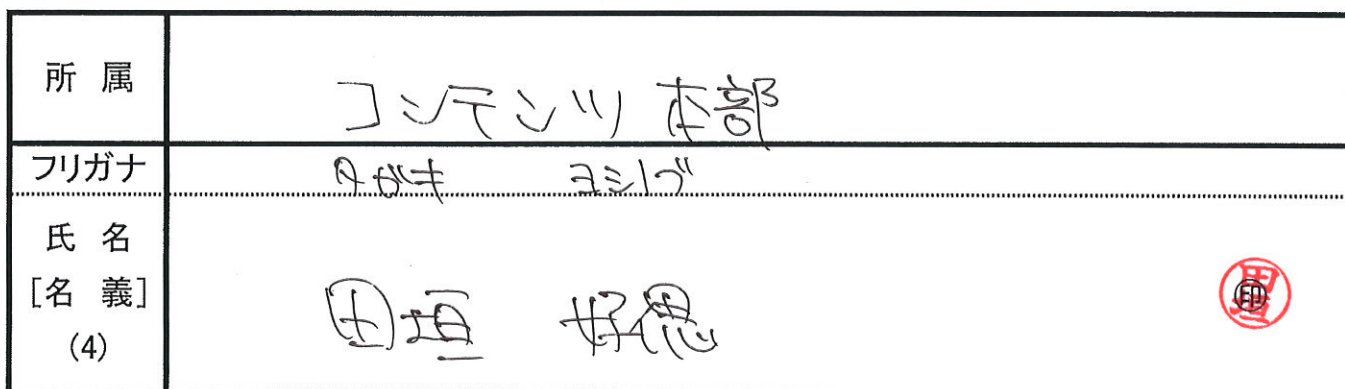 所 属
コンテンツ 本部
フリガナ
タガキ ヨシノブ
氏 名
[名 義]
(4)
田垣 好
㊞
田垣